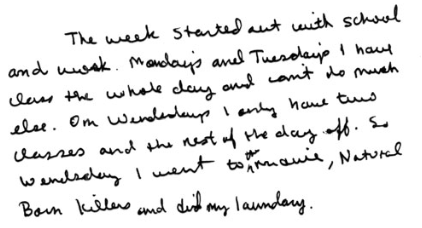 The week started out with school
and work. Mondays and Tuesdays I have
class the whole day and can't do much
else. On Wendesdays I only have two
classes and the rest of the day off. So
Wendsday I went to the movie, Natural
Born Killers and did my laundary.